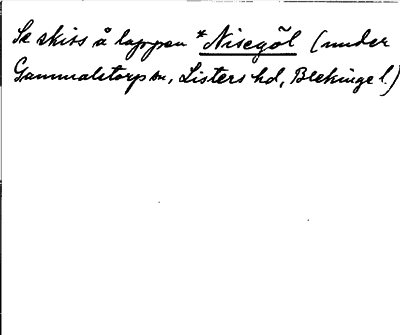 Se skiss å lappen *Nisegöl (under
Gammalstorp sn, Listers hd, Blekinge l.)